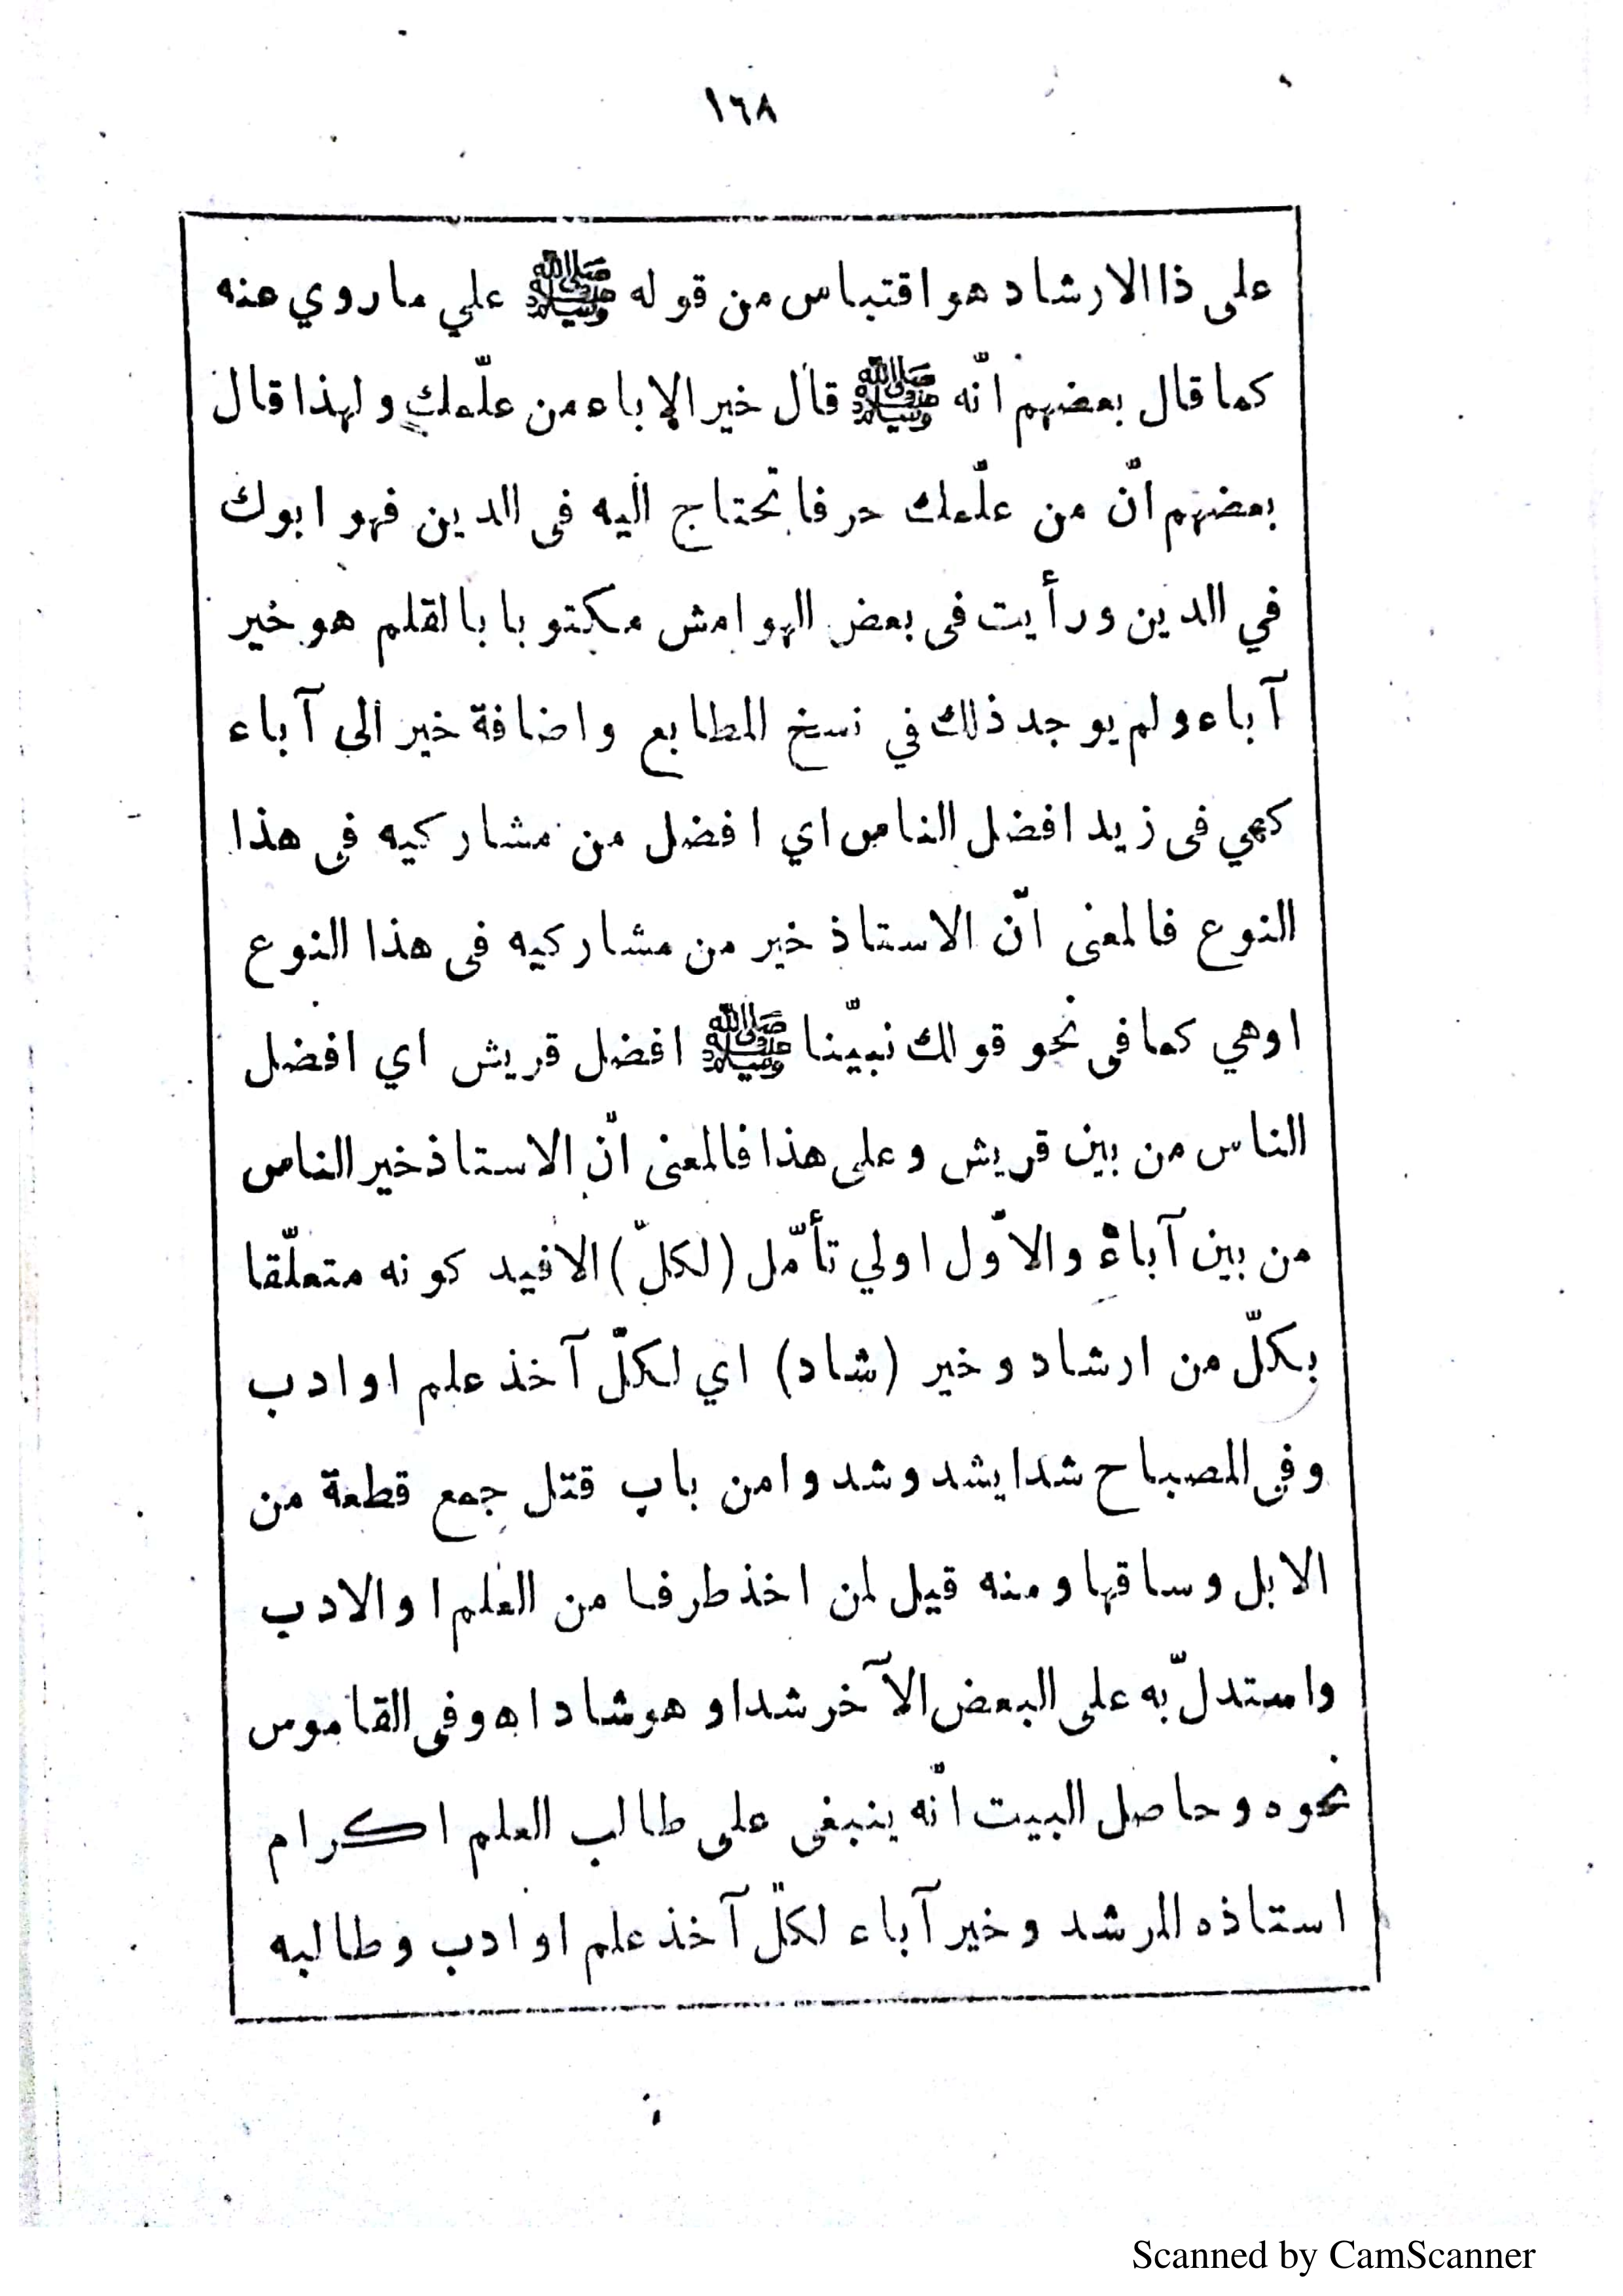 ١٦٨
على ذا الارشاد هو اقتباس من قوله ﷺ علي ما روي عنه
كما قال بعضهم انّه ﷺ قال خير الاباء من علّمك ولهذا قال
بعضهم انّ من علّمك حرفا تحتاج اليه فى الدين فهو ابوك
في الدين ورأيت فى بعض الهوامش مكتوبا بالقلم هو خير
آباء ولم يوجد ذلك في نسخ المطابع واضافة خير الى آباء
كهي فى زيد افضل الناس اي افضل من مشاركيه فى هذا
النوع فالمعنى انّ الاستاذ خير من مشاركيه فى هذا النوع
اوهي كما فى نحو قولك نبيّنا ﷺ افضل قريش اي افضل
الناس من بين قريش وعلى هذا فالمعنى انّ الاستاذ خير الناس
من بين آباء والاوّل اولي تأمّل (لكلّ) الافيد كونه متعلّقا
بكلّ من ارشاد وخير (شاد) اي لكلّ آخذ علم او ادب
وفى المصباح شدا يشد وشدوا من باب قتل جمع قطعة من
الابل وساقها ومنه قيل لمن اخذ طرفا من العلم او الادب
واستدلّ به على البعض الآخر شدا وهو شاد اه وفى القاموس
نحوه وحاصل البيت انّه ينبغى على طالب العلم اكرام
استاذه المرشد وخير آباء لكلّ آخذ علم او ادب وطالبه
Scanned by CamScanner